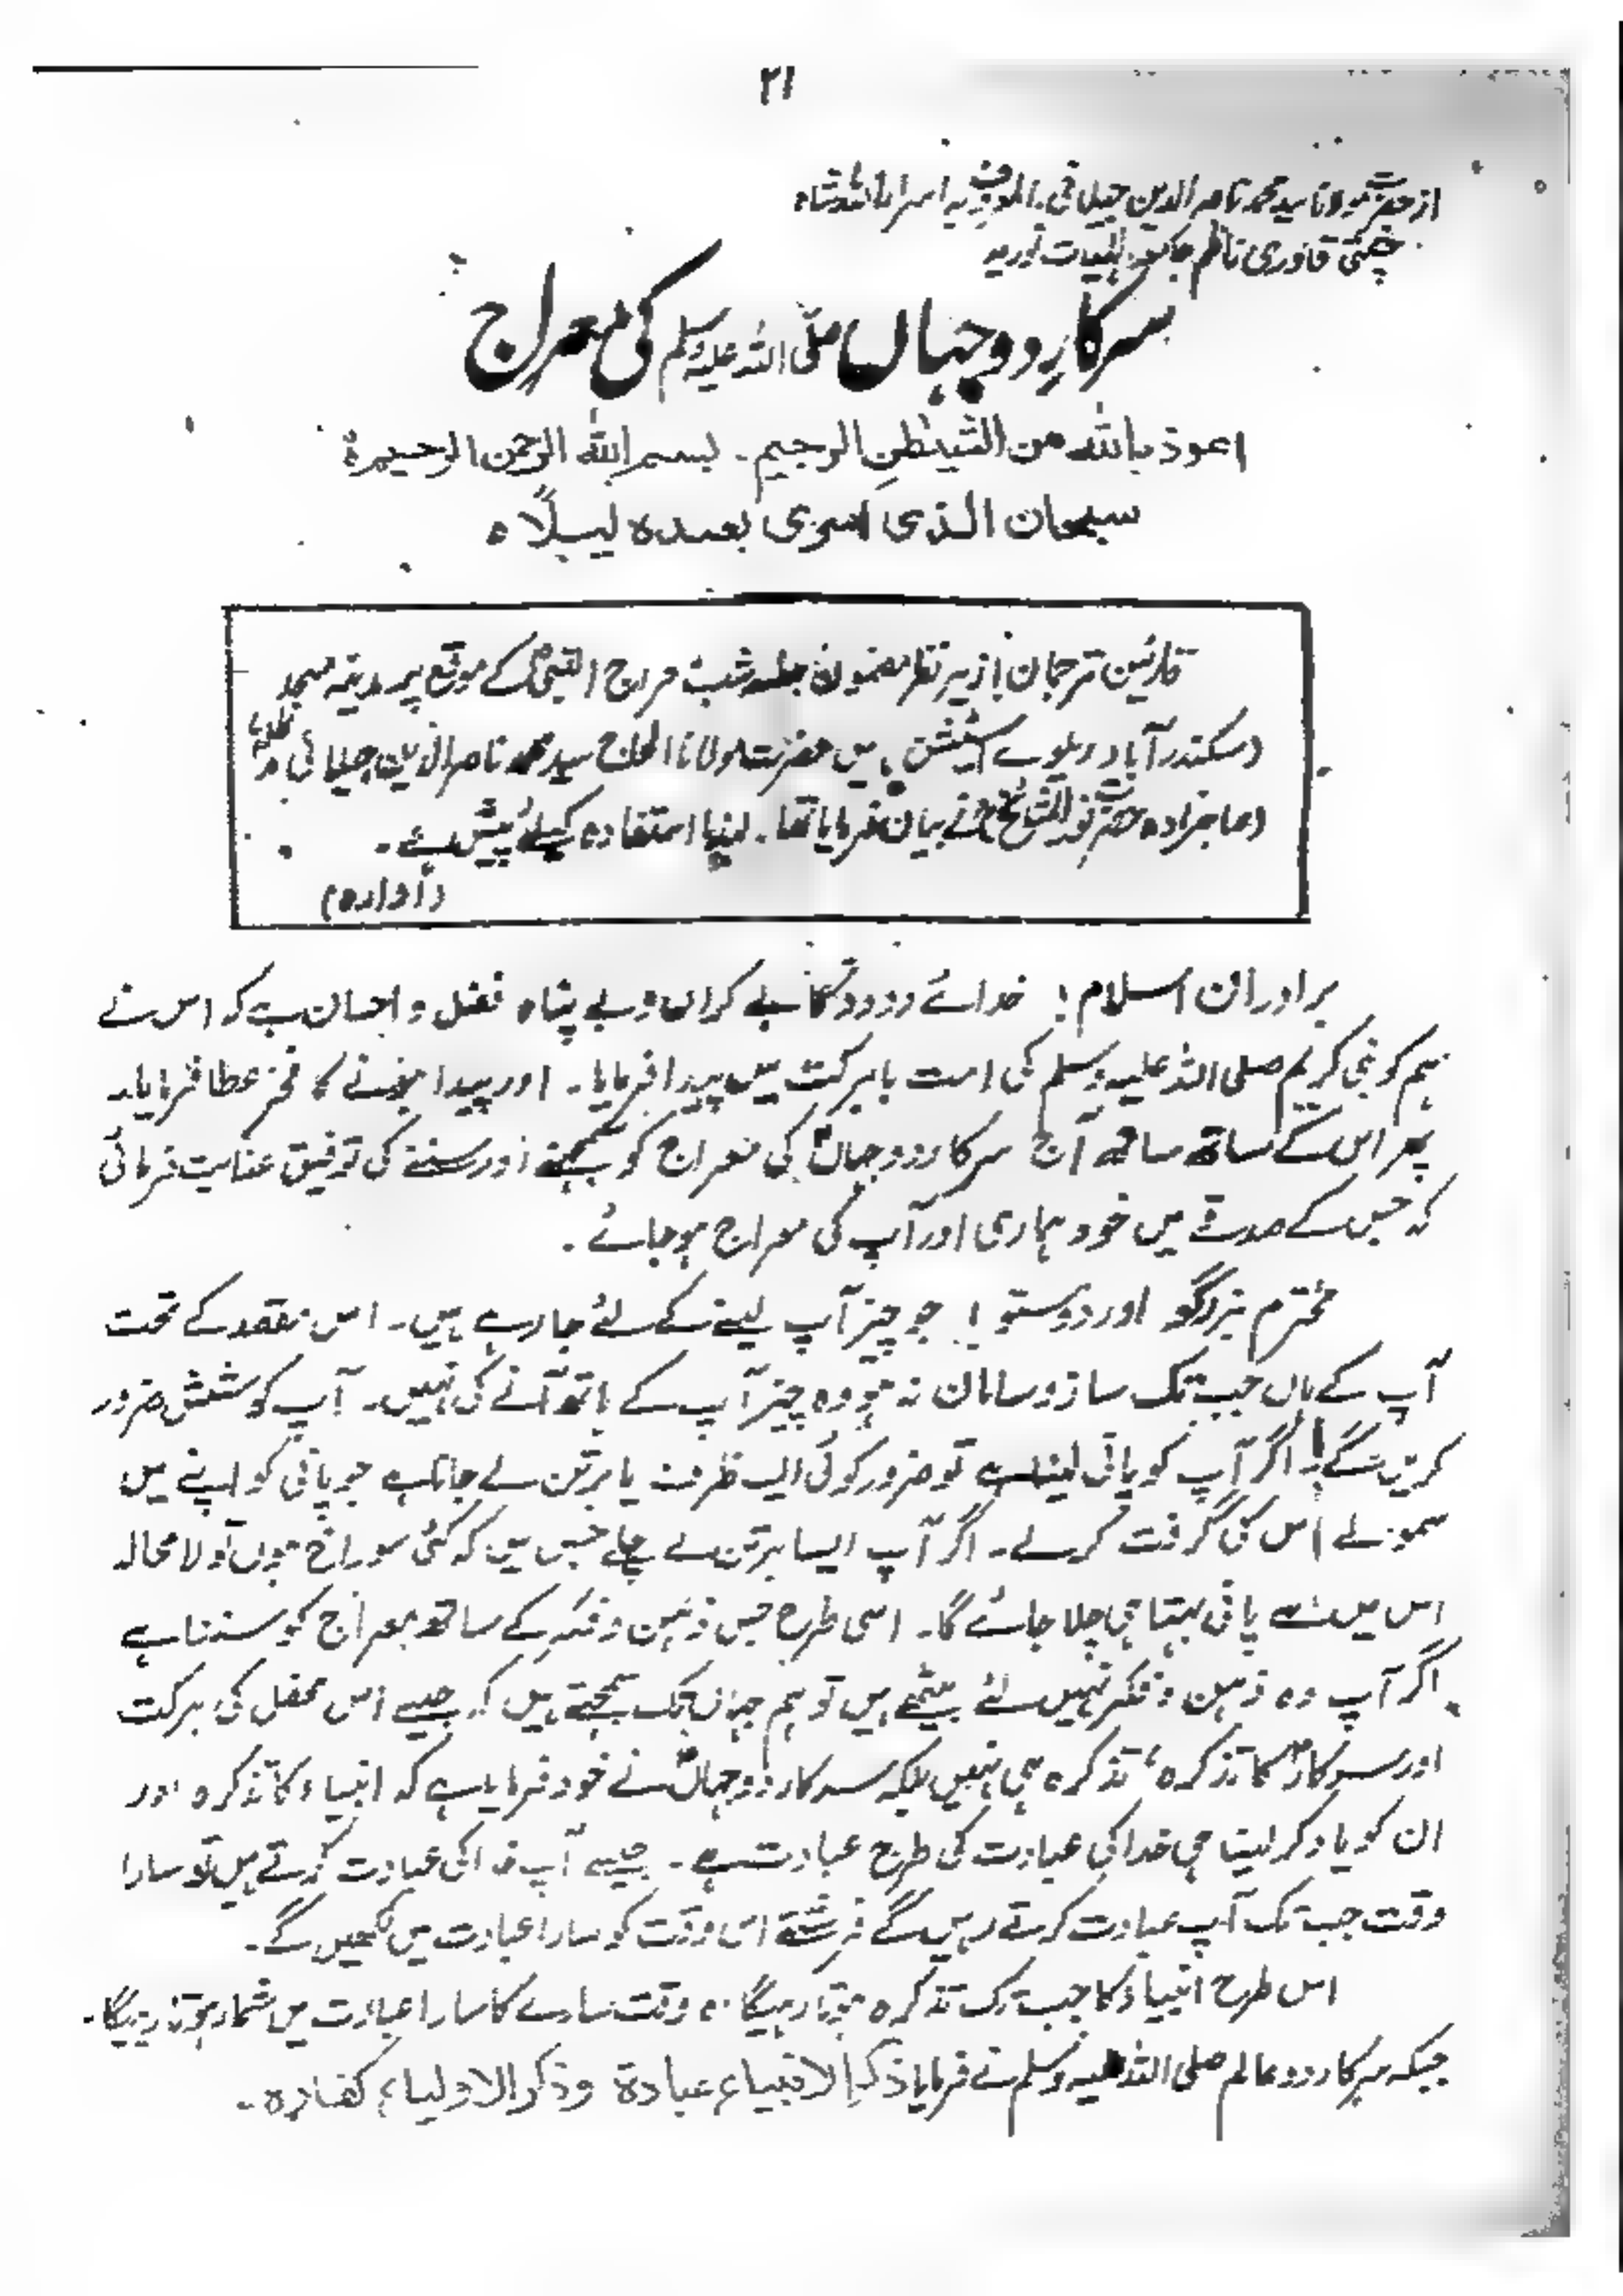 ۲۱
از حضرت مولانا سید محمد ناصر الدین جیلانی المعروف بہ اسرار اللہ شاہ
چشتی قادری ناظم جامعۃ نوریہ
سرکارِ دو جہاں صلی اللہ علیہ وسلم کی معراج
اعوذ باللہ من الشیطٰنِ الرجیم۔ بسم اللہ الرحمن الرحیم ہ
سبحان الذی اسریٰ بعبدہ لیلًا ہ
قارئین ترجمان! زیر نظر مضمون جلسہ شب معراج النبیؐ کے موقع پر مدینہ مسجد
(سکندرآباد ریلوے اسٹیشن) میں حضرت مولانا الحاج سید محمد ناصر الدین جیلانی مدظلہٗ
(صاحبزادہ حضرت نور المشائخؒ) نے بیان فرمایا تھا۔ لہٰذا استفادہ کیلئے پیش ہے۔
(ادارہ)
برادران اسلام! خدائے ودود کا بے کراں و بے پناہ فضل و احسان ہے کہ اس نے
ہم کو نبی کریم صلی اللہ علیہ وسلم کی امت بابرکت میں پیدا فرمایا۔ اور پیدا ہونے کا فخر عطا فرمایا۔
پھر اس کے ساتھ ساتھ آج سرکار دوجہاںؐ کی معراج کو سمجھنے اور سننے کی توفیق عنایت فرمائی
کہ جس کے صدقے میں خود ہماری اور آپ کی معراج ہوجائے۔
محترم بزرگو اور دوستو! جو چیز آپ لینے کے لئے جا رہے ہیں۔ اس مقصد کے تحت
آپ کے ہاں جب تک ساز و سامان نہ ہو وہ چیز آپ کے ہاتھ آنے کی نہیں۔ آپ کوشش ضرور
کریں گے! اگر آپ کو پانی لینا ہے تو ضرور کوئی ایسا ظرف یا برتن لے جانا ہے جو پانی کو اپنے میں
سمو لے اس کی گرفت کرلے۔ اگر آپ ایسا برتن لے چلے جس میں کہ کئی سوراخ ہوں تو لا محالہ
اس میں سے پانی بہتا ہی چلا جائے گا۔ اسی طرح جس ذہن و فکر کے ساتھ معراج کو سننا ہے
اگر آپ وہ ذہن و فکر نہیں لئے بیٹھے ہیں تو ہم جہاں تک سمجھتے ہیں کہ جیسے اس محفل کی برکت
اور سرکارؐ کا تذکرہ، تذکرہ ہی نہیں بلکہ سرکار دوجہاںؐ نے خود فرمایا ہے کہ انبیاء کا تذکرہ اور
ان کو یاد کر لینا ہی خدا کی عبادت کی طرح عبادت ہے۔ جیسے آپ خدا کی عبادت کرتے ہیں تو سارا
وقت جب تک آپ عبادت کرتے رہیں گے فرشتے اس وقت کو سارا عبادت میں لکھیں گے۔
اس طرح انبیاء کا جب تک تذکرہ ہوتا رہیگا وہ وقت سارے کا سارا عبادت میں شمار ہوتا رہیگا۔
جبکہ سرکار دو عالم صلی اللہ علیہ وسلم نے فرمایا ذکر الانبیاء عبادۃ وذکر الاولیاء کفارہ۔